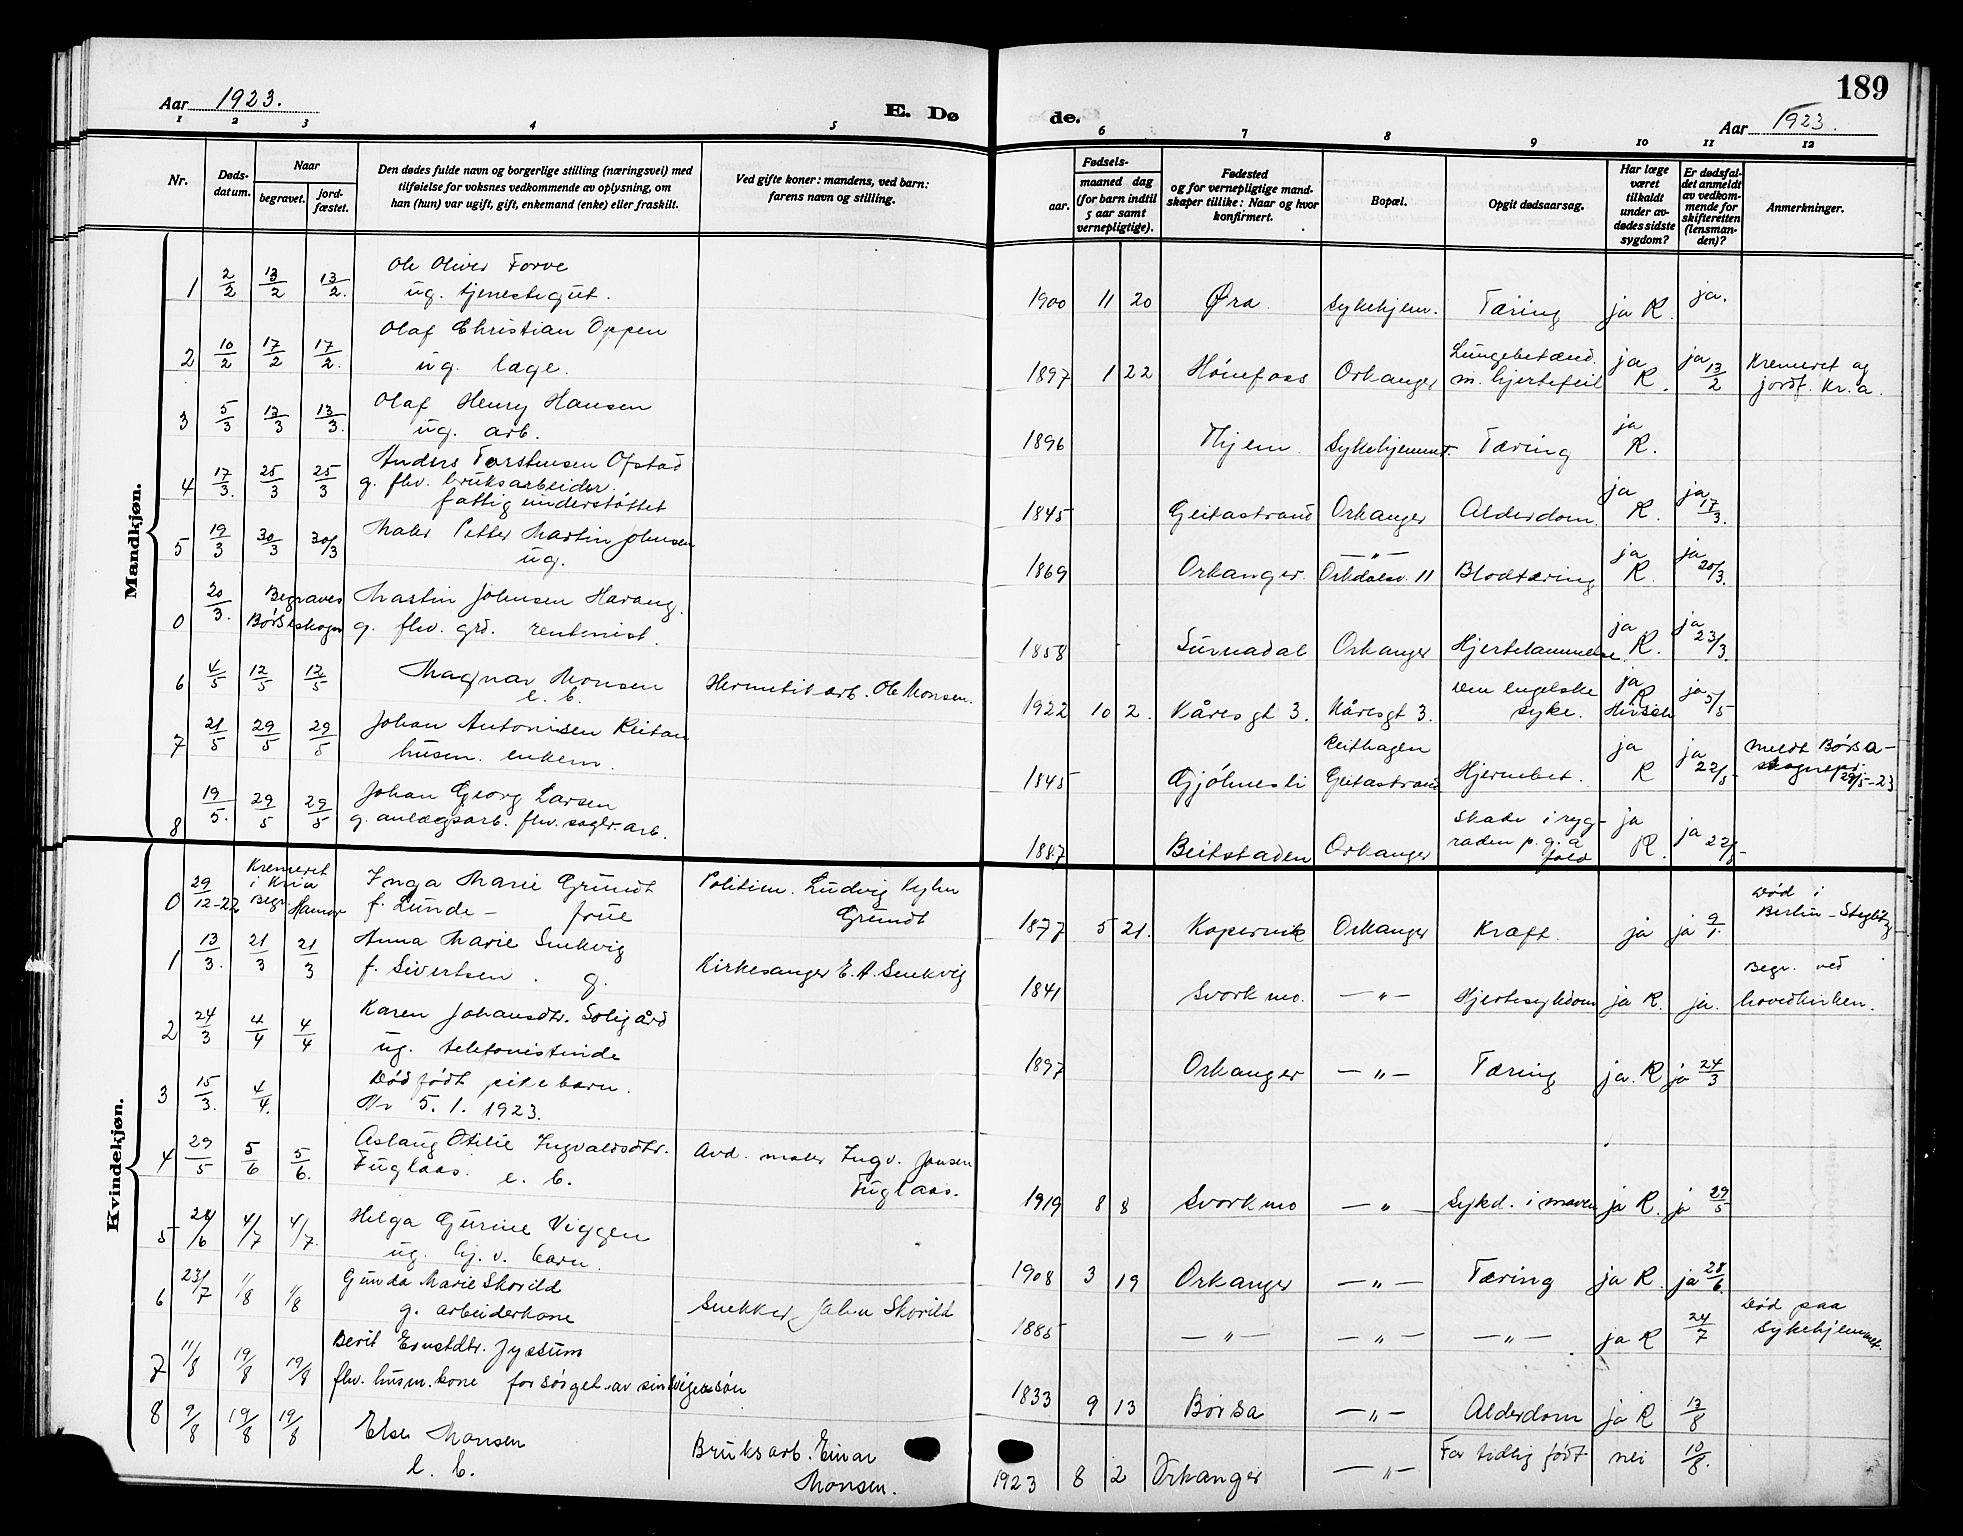 189
Aar 1923.
E. Dø
de.
Aar 1923.
1 2 3 4 5
6 7 8 9 10 11 12
Nr.
Døds-
datum.
Naar
begravet.
jord-
fæstet.
Den dødes fulde navn og borgerlige stilling (næringsvei) med
tilføielse for voksnes vedkommende av oplysning, om
han (hun) var ugift, gift, enkemand (enke) eller fraskilt.
Ved gifte koner: mandens, ved barn:
farens navn og stilling.
Fødsels-
aar.
maaned dag
(for barn indtil
5 aar samt
vernepligtige).
Fødested
og for vernepligtige mand-
skaper tillike: Naar og hvor
konfirmert.
Bopæl.
Opgit dødsaarsag.
Har læge
været
tilkaldt
under av-
dødes sidste
sygdom?
Er dødsfal-
det anmeldt
av vedkom-
mende for
skifteretten
(lensman-
den)?
Anmerkninger.
Mandkjøn.
1 2/2 13/2 13/2. Ole Oliver Forve
ug. tjenestegut.
1900 11 20 Øra. Sykehjem. Tæring ja R. ja.
2 10/2 17/2 17/2. Olaf Christian Oppen
ug. læge.
1897 1 22 Hønefoss Orkanger Lungebetænd. m. hjertefeil ja R. ja 13/2 Kremeret og
jordf. Kr.a.
3 5/3 13/3 13/3. Olaf Henry Hansen
ug. arb.
1896 Thjem Sykehjemmet. Tæring ja R.
4 17/3. 25/3 25/3 Anders Torstensen Ofstad
g. fhv. bruksarbeider.
fattigunderstøttet
1845 Geitastrand Orkanger Alderdom. ja R. ja 17/3.
5 19/3 30/3 30/3 Maler Petter Martin Johnsen
ug.
1869 Orkanger. —„— Orkdalsv. 11 Blodtæring ja R. ja 20/3.
0 20/3. Begraves
Børseskogn Martin Johnsen Harang.
g. fhv. grd. rentenist.
1858 Surnadal Orkanger Hjertelammelse ja R. ja 23/3.
6 4/5 12/5 12/5 Magnar Monsen
e. b.
Hermetikarb. Ole Monsen.
1922 10 2. Kåresgt 3. Kåresgt 3. Den engelske
syke. ja R Hirsch ja 5/5
7 21/5 29/5 29/5 Johan Antonisen Reitan
husm. enkem.
1845 Gjølmesli Reithagen
Geitastrand Hjernebet. ja R ja 22/5 meldt Børsa-
skognepr. 29/5-23
8 19/5. 29/5 29/5 Johan Georg Larsen
g. anlægsarb. fhv. sagbr. arb.
1887 Beitstaden Orkanger Skade i ryg-
raden p. g. a
fald ja R. ja 22/5
Kvindekjøn.
0 29/12-22 Kremeret
i Kr.ia
Begr. Hamar Inga Marie Grundt
f. Lunde – frue
Politim. Ludvig Kyhn
Grundt
1877 5 21. Kopervik Orkanger Kræft. ja ja 9/1. Død i
Berlin-Steglitz
1 13/3. 21/3 21/3 Anna Marie Snekvig
f. Sivertsen. g.
Kirkesanger E. A. Snekvig
1841 Svorkmo. —„— Hjertesykdom ja R. ja. Begr. ved
hovedkirken.
2 24/3 4/4 4/4 Karen Johansdtr. Soligård
ug. telefonistinde
1897 Orkanger —„— Tæring ja. R ja 24/3
3 15/3. 4/4. Dødfødt pikebarn.
Nr 5. 1. 1923.
4 29/5 5/6 5/6. Aslaug Otelie Ingvaldsdtr.
Fuglaas. e. b.
Avd. maler Ingv. Jonsen
Fuglaas.
1919 8 8 Svorkmo —„— Sykd. i maven ja R. ja 29/5
5 28/6 4/7 4/7. Helga Gurine Viggen
ug. hj. v. barn.
1908 3 19 Orkanger —„— Tæring ja R. ja 28/6.
6 23/7 1/8 1/8 Gunda Marie Skorild
g. arbeiderkone
Snekker John Skorild
1885 —„— —„— —„— ja R 24/7 Død paa
sykehjemmet.
7 11/8 19/8 19/8 Berit Ernstdtr. Jyssum
fhv. husm. kone forsørget av sin svigersøn
1833 9 13 Børsa —„— Alderdom ja R 13/8
8 9/8 19/8 19/8 Else Monsen
e. b.
Bruksarb. Einar
Monsen.
1923 8 2 Orkanger —„— For tidlig født nei 10/8.